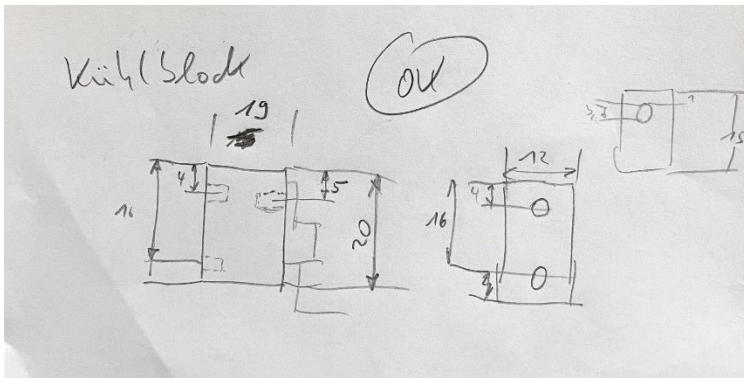 Kühlblock
OK
19
4
16
5
20
12
4
16
4
3,3
15